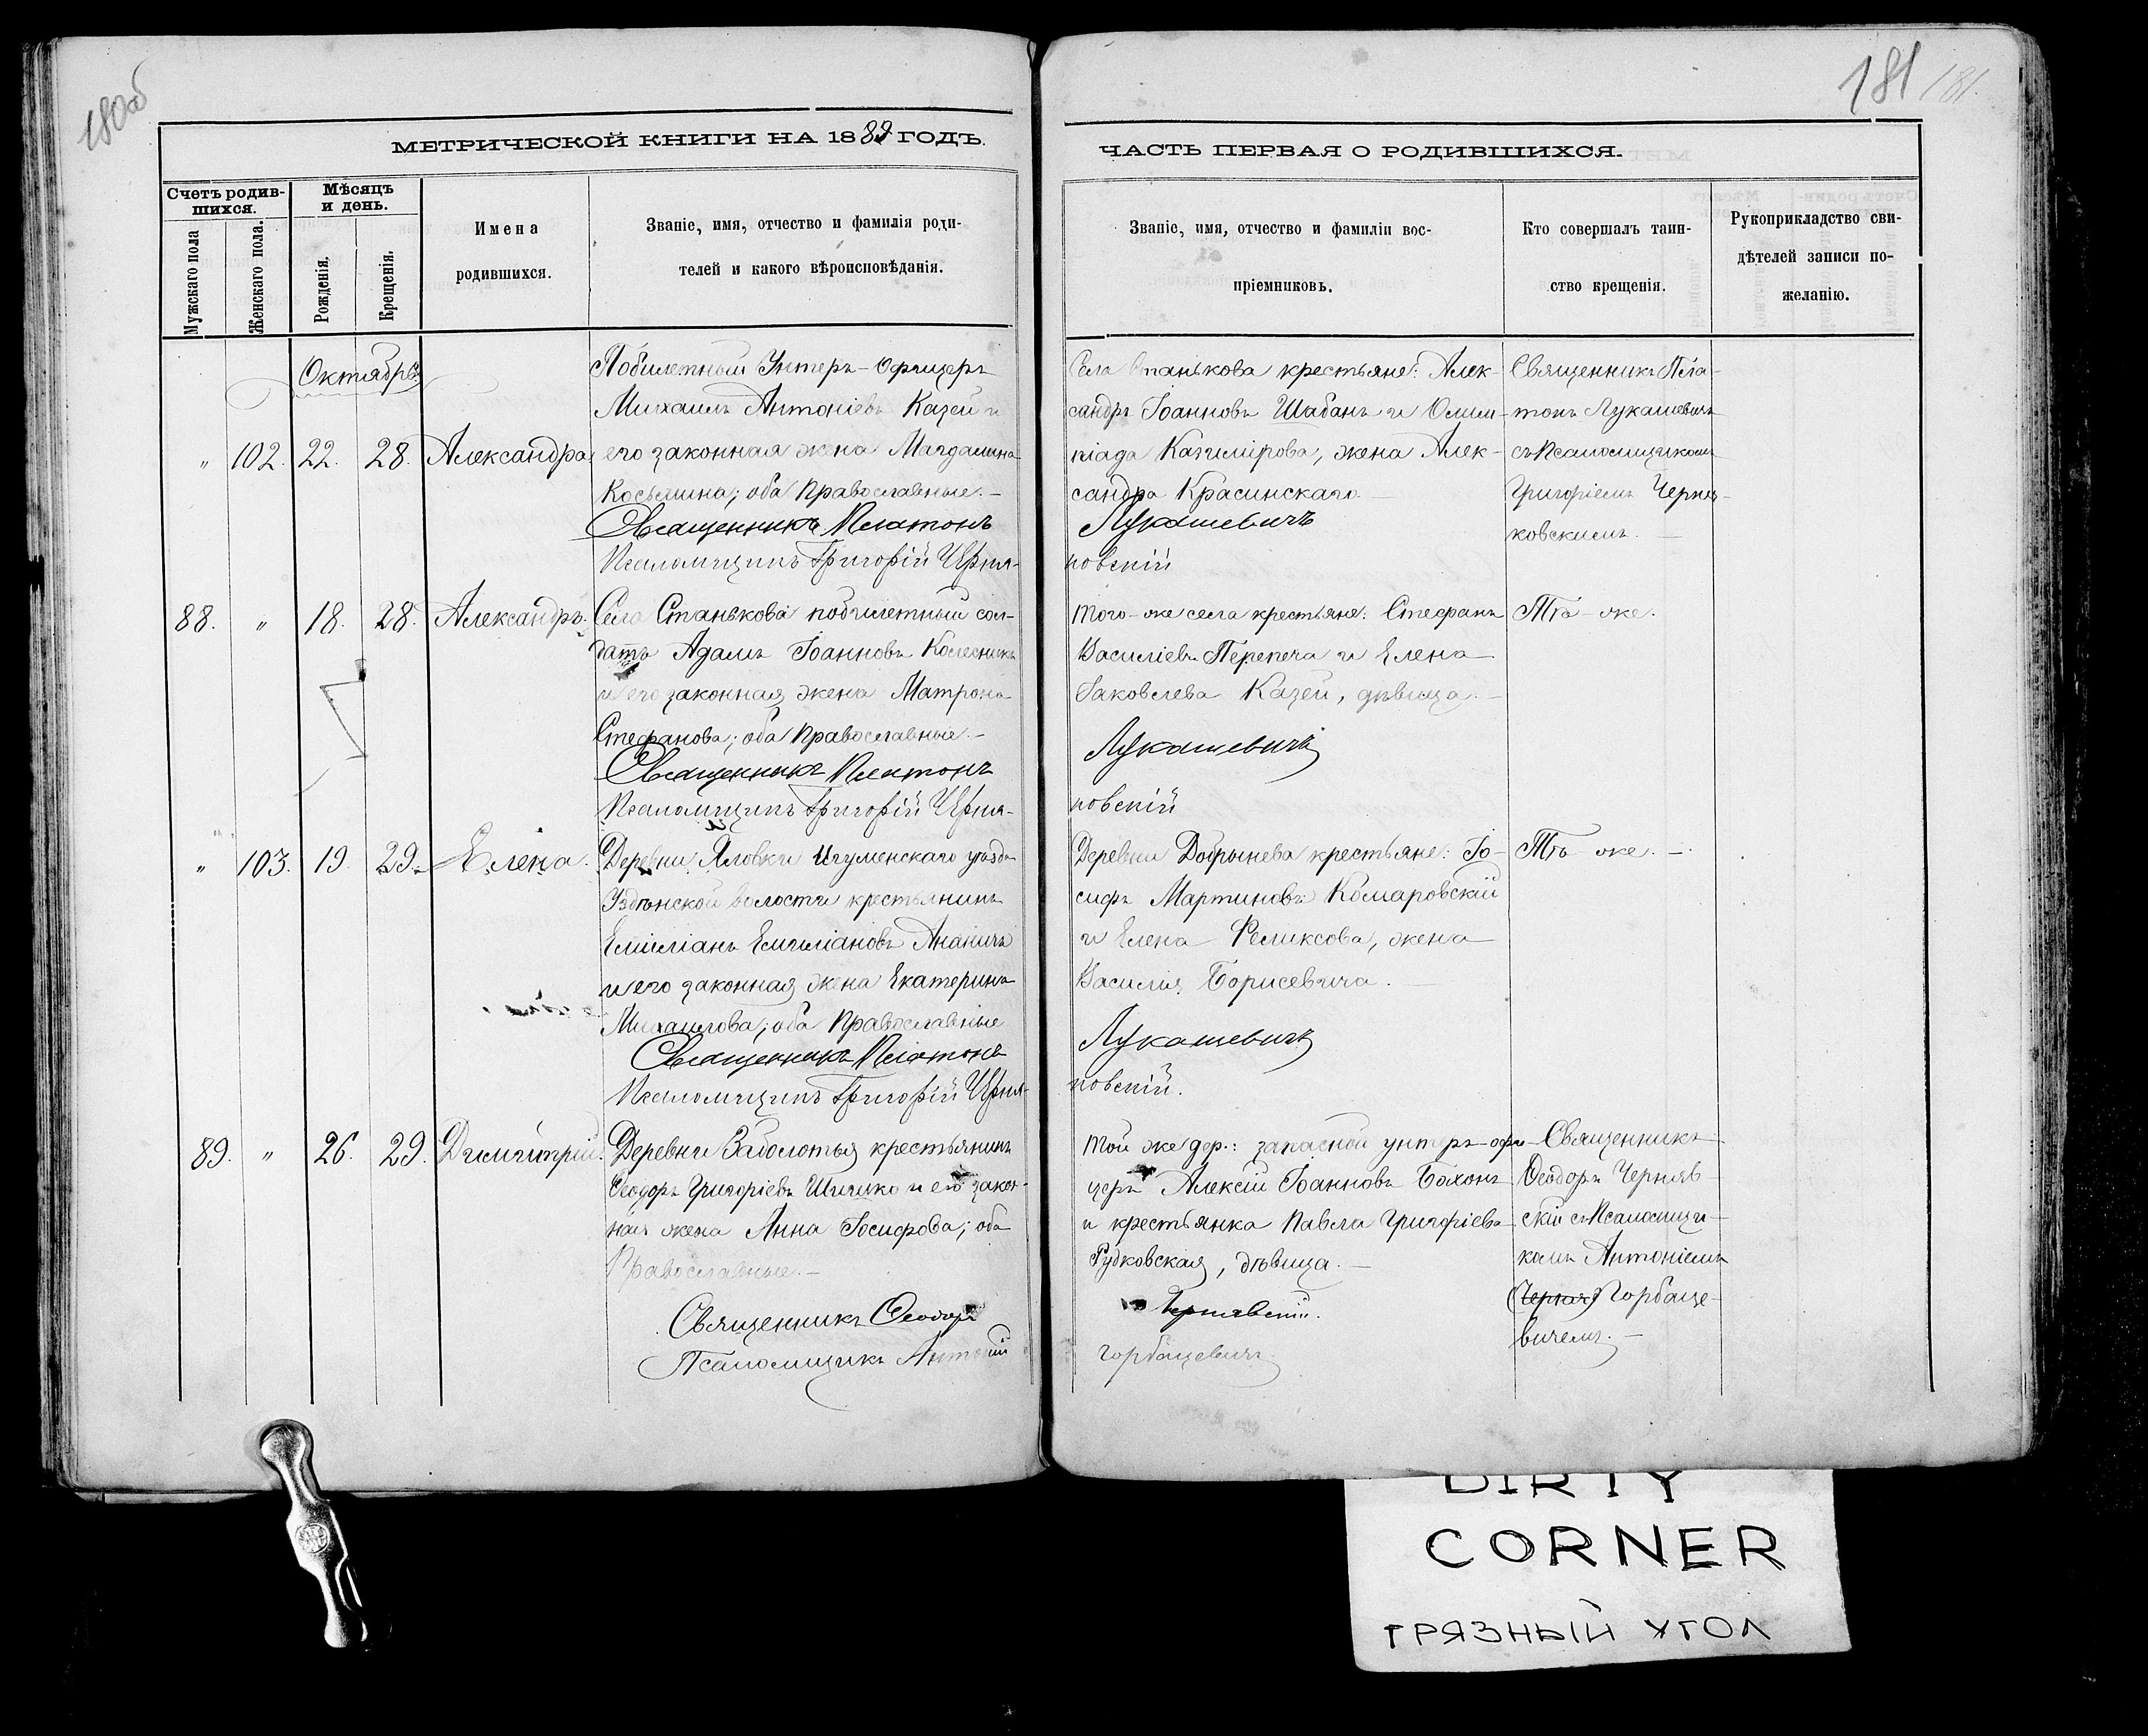 180об
181
181.
МЕТРИЧЕСКОЙ КНИГИ НА 1889 ГОДЪ.
ЧАСТЬ ПЕРВАЯ О РОДИВШИХСЯ.
Счетъ родив-
шихся.
Мужскаго пола
Женскаго пола.
Мѣсяцъ
и день.
Рожденія.
Крещенія.
Имена
родившихся.
Званіе, имя, отчество и фамилія роди-
телей и какого вѣроисповѣданія.
Званіе, имя, отчество и фамиліи вос-
пріемниковъ.
Кто совершалъ таин-
ство крещенія.
Рукоприкладство сви-
дѣтелей записи по-
желанію.
Октябрь.
„ 102. 22. 28. Александра
Побилетный Унтеръ-офицеръ
Михаилъ Антоніевъ Казей и
его законная жена Магдалина
Косьмина; оба Православные.-
Священникъ Платонъ
Псаломщикъ Григорій Черня-
Села Станькова крестьяне: Алек-
сандръ Іоанновъ Шабанъ и Олим-
піада Казимірова, жена Алек-
сандра Красинскаго.
Лукашевичъ
ковскій
Священникъ Пла-
тонъ Лукашевичъ
съ Псаломщикомъ
Григоріемъ Черня-
ковскимъ.
88. „ 18. 28. Александръ.
Села Станькова побилетный сол-
датъ Адамъ Іоанновъ Колесникъ
и его законная жена Матрона
Стефанова; оба Православные.-
Священникъ Платонъ
Псаломщикъ Григорій Черня-
Того-же села крестьяне: Стефанъ
Василіевъ Перепеча и Елена
Іаковлева Казей, дѣвица.-
Лукашевичъ
ковскій
Тѣ-же.
„ 103. 19. 29. Елена.
Деревни Яловки Игуменскаго уѣзда
Узденской волости крестьянинъ
Емиліанъ Емиліановъ Ананичъ
и его законная жена Екатерина
Михаилова; оба Православные
Священникъ Платонъ
Псаломщикъ Григорій Черня-
Деревни Добринева крестьяне: Іо-
сифъ Мартиновъ Комаровскій
и Елена Феликсова, жена
Василія Борисевича.
Лукашевичъ
ковскій.
Тѣ-же.-
89. „ 26. 29. Димитрій.
Деревни Заболотья крестьянинъ
Ѳеодоръ Григоріевъ Шишко и его закон-
ная жена Анна Іосифова; оба
Православные.-
Священникъ Ѳеодоръ
Псаломщикъ Антоній
Той же дер.: запасной унтеръ-офи-
церъ Алексій Іоанновъ Бохонъ
и крестьянка Павла Григоріева
Рудковская, дѣвица.-
Чернявскій.
Горбацевичъ
Священникъ
Ѳеодоръ Черняв-
скій съ Псаломщи-
комъ Антоніемъ
(Черня) Горбаце-
вичемъ.-
DIRTY
CORNER
ГРЯЗНЫЙ УГОЛ